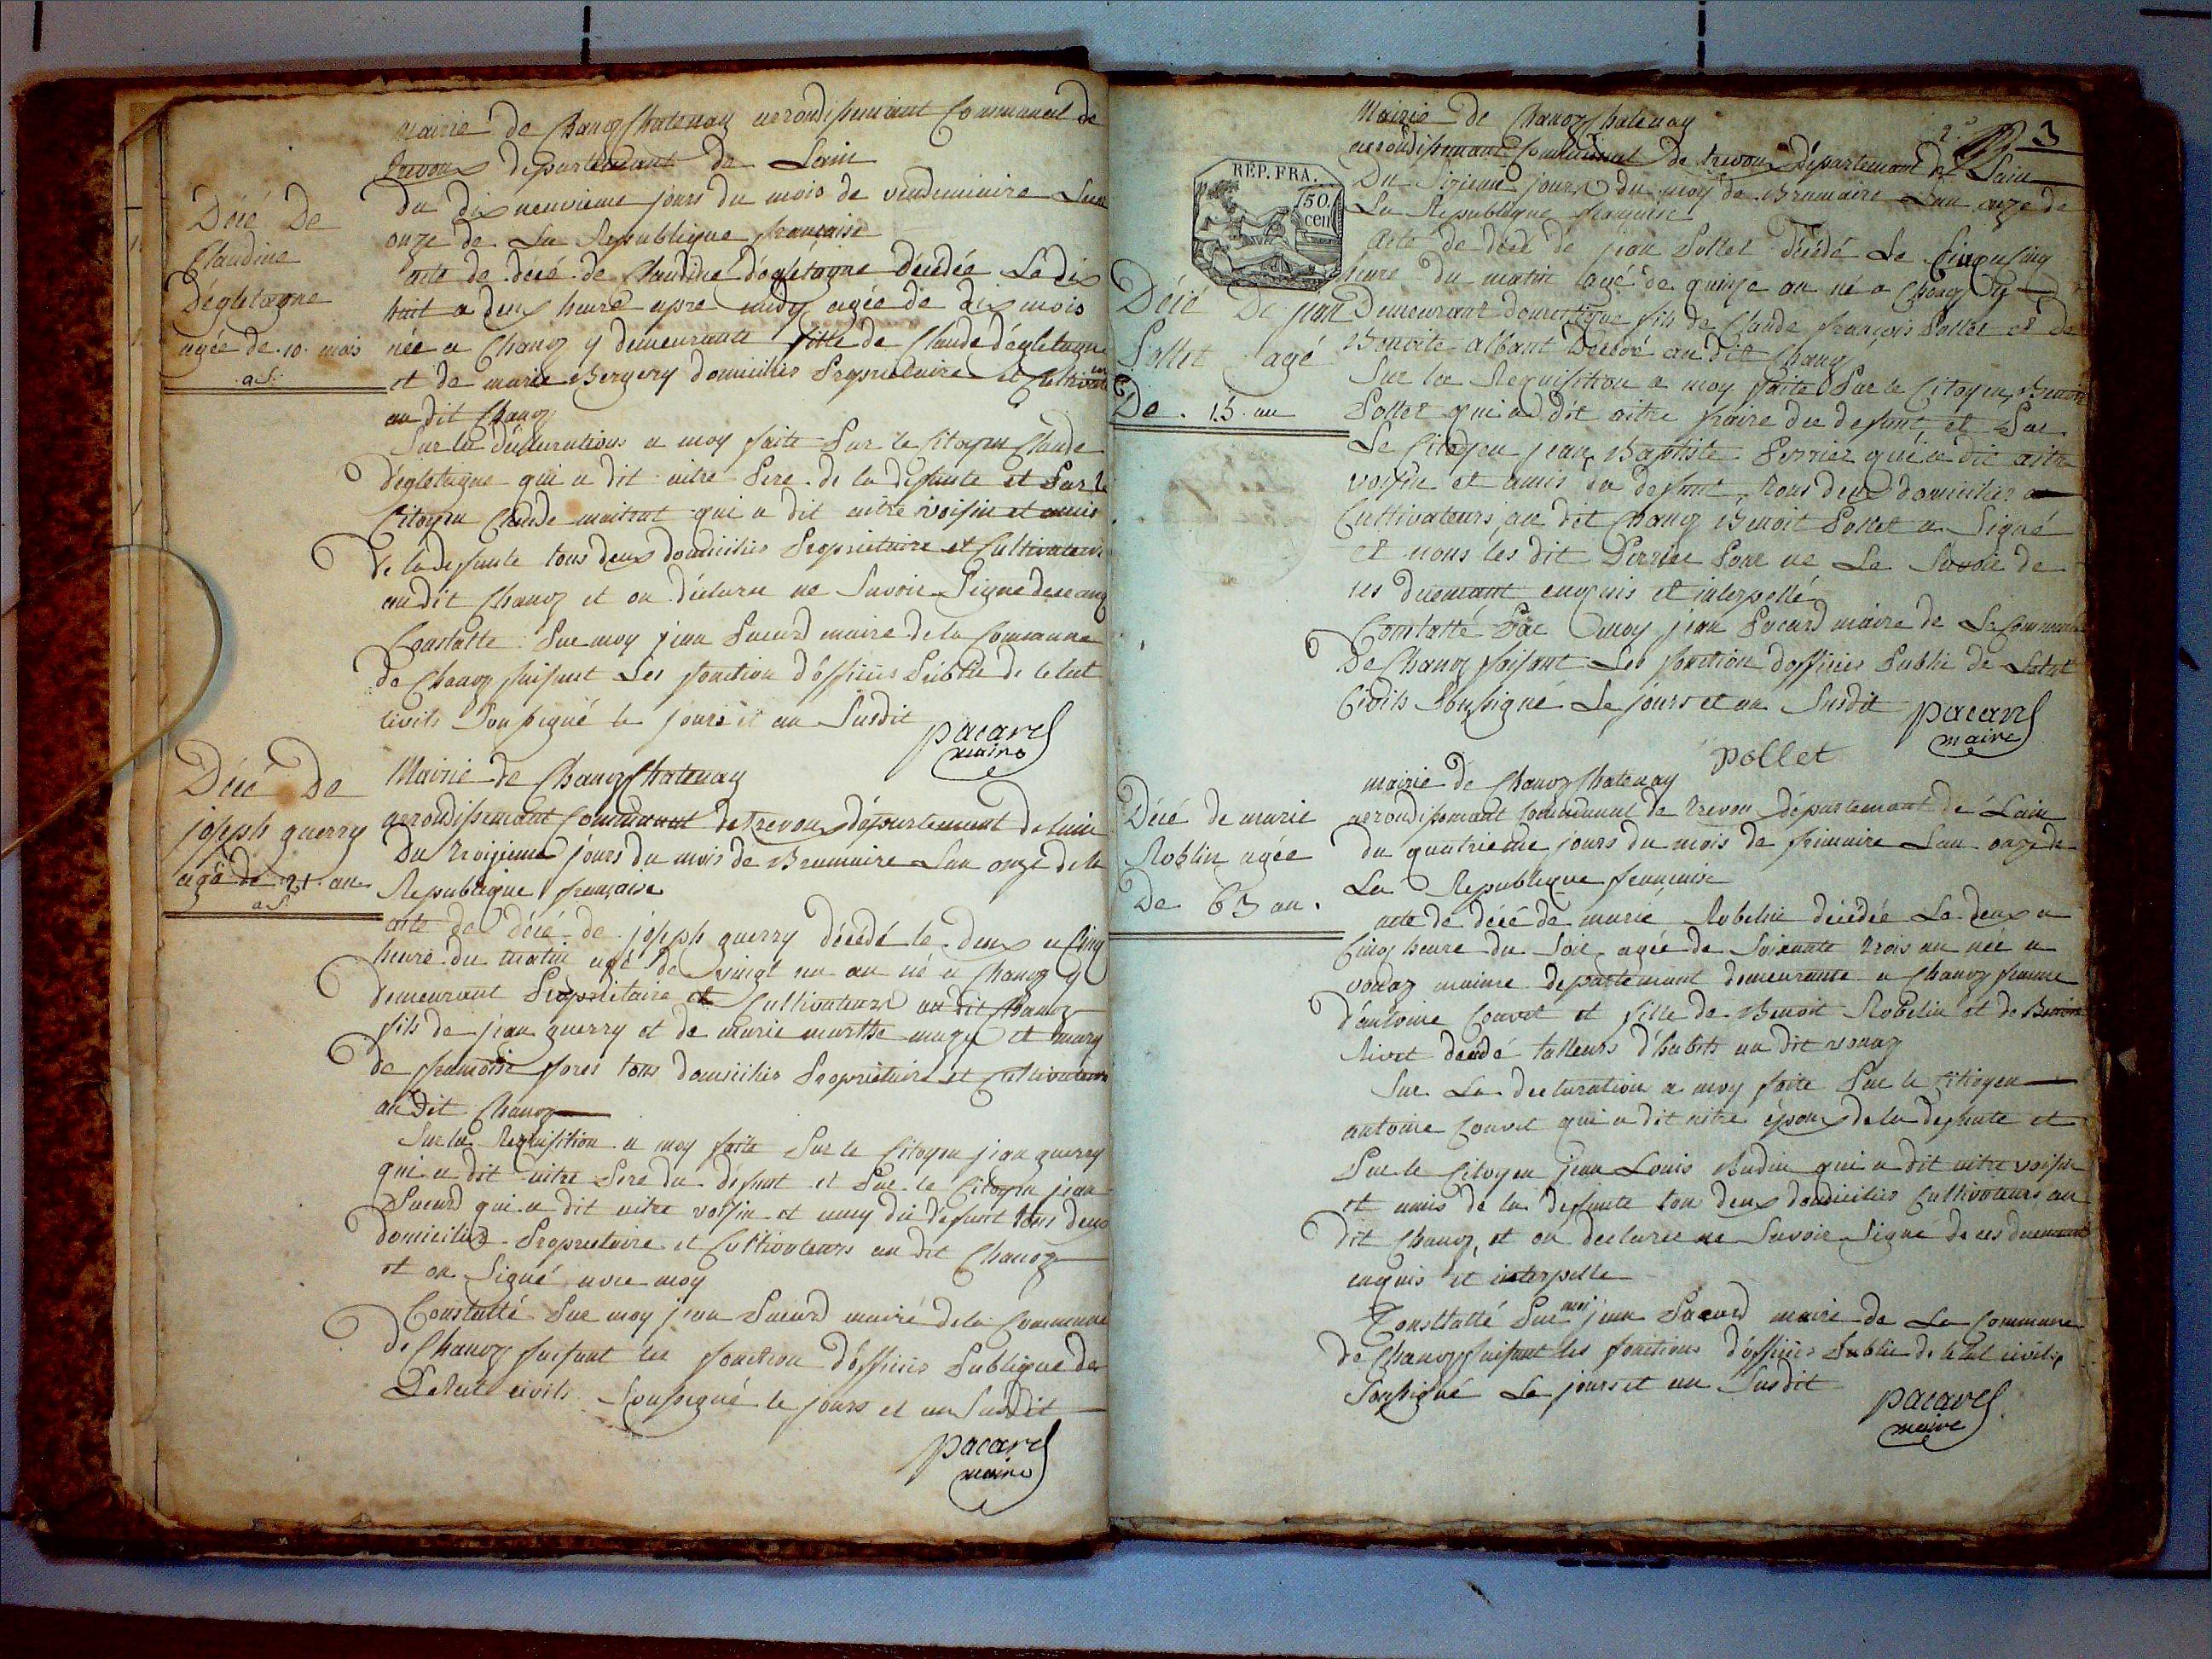 Mairie de Chanoz Chatenay arrondissemant Communal de
trevoux departemant de Lain
du dix neuvieme jours du mois de vendemiaire Lan
onze de La Republique française
Décé De
Claudine
Dégletagne
agée de 10 mois
a.S.
acte de décé de Claudine dégletagne décédée Le dix
huit a deux heure apre midy agée de dix mois
née a Chanoz y demeurante fille de Claude dégletagne
et de marie Bergery domicilies Proprietaire et Cultivateurs
au dit Chanoz
Sur la déclaration a moy faite Par le Citoyen Claude
dégletagne qui a dit aitre Pere de la defunte et Par le
Citoyen Claude moitrat qui a dit aitre voisin et amis
de la defunte tous deux domicilies Proprietaire et Cultivateurs
au dit Chanoz et on déclaré ne Savoir Signe de ce enq
Constatte Par moy jean Pacard maire de la Commune
de Chanoz faisant Les fonction d'officies Publie de letat
civils Soussigné le jours et an Susdit
pacard
maire
Décé De
joseph guerry
agé de 21 an
a.S.
Mairie de Chanoz Chatenay
arrondissemant Communal de trevoux département de lain
du troizieme jours du mois de Brumaire Lan onze de la
Republique française
acte de décé de joseph guerry décédé le deux a Cinq
heure du matin agé de vingt un an né a Chanoz y
demeurant Proprietaire et Cultivateurs au dit Chanoz
fils de jean guerry et de marie marthe et mary
de francoise fores tous domicilies Proprietaire et Cultivateurs
au dit Chanoz
Sur la Requisition a moy faite Par le Citoyen jean guerry
qui a dit aitre Pere du défunt et Par le Citoyen jean
Pacard qui a dit aitre voisin et amy du défunt tous deux
domicilies Proprietaire et Cultivateurs au dit Chanoz
et on Signé avec moy
Constatté Par moy jean Pacard maire de la Commune
de Chanoz faisant les fonction d'officies Publique de
Letat civils Soussigné le jours et an Susdit
pacard
maire
3
REP. FRA.
50.
cen
Mairie de Chanoz Chatenay
arrondissemant Communal de trevoux département de Lain
Du Sizieme jours du moy de Brumaire Lan onze de
La Republique française
Décé De jean
Pollet agé
De 15 an
Acte de décé de jean Pollet décédé Le Cinq a Cinq
heure du matin agé de quinze an né a Chanoz y
Demeurant domestique fils de Claude françois Pollet et de
Benoite albant au dit Chanoz
Sur la Requisition a moy faite Par le Citoyen Benoit
Pollet qui a dit aitre fraire du defunt et Par
Le Citoyen jean Baptiste Perrier qui a dit aitre
voisin et amis du defunt, tous deux domicilies
Cultivateurs au dit Chanoz Benoit Pollet a Signé
et nous les dit Perrier Pour ne Le Savoir de
ces duemant enquis et interpellé
Constatté Par moy jean Pacard maire de La Commune
de Chanoz faisant Les fonction d'officies Public de Letat
Civils Soussigné Le jours et an Susdit
pacard
maire
pollet
Décé de marie
Roblin agée
De 63 an.
mairie de Chanoz Chatenay
arrondissemant Communal de trevoux département de Lain
du quatrieme jours du mois de frimaire Lan onze de
La Republique française
acte de décé de marie Robelin décédée Le deux a
Cinq heure du Soir agée de Soixante trois an née a
vonaz maime departemant demeurante a Chanoz femme
d'antoine Couvet et fille de Benoit Robelin et de Benoite
Rivet décédé talleurs d'habits au dit vonaz
Sur La declaration a moy faite Par le Citoyen
antoine Couvet qui a dit aitre époux de la defunte et
Par le Citoyen jean Louis Rudin qui a dit aitre voisin
et amis de la defunte tou deux domicilies Cultivateurs au
dit Chanoz, et on declaré ne Savoir Signe de ces duemant
enquis et interpelle
Constatté Par moi jean Pacard maire de La Commune
de Chanoz faisant les fonctions d'officies Public de letat civils
Soussigné Le jours et an Susdit
pacard
maire